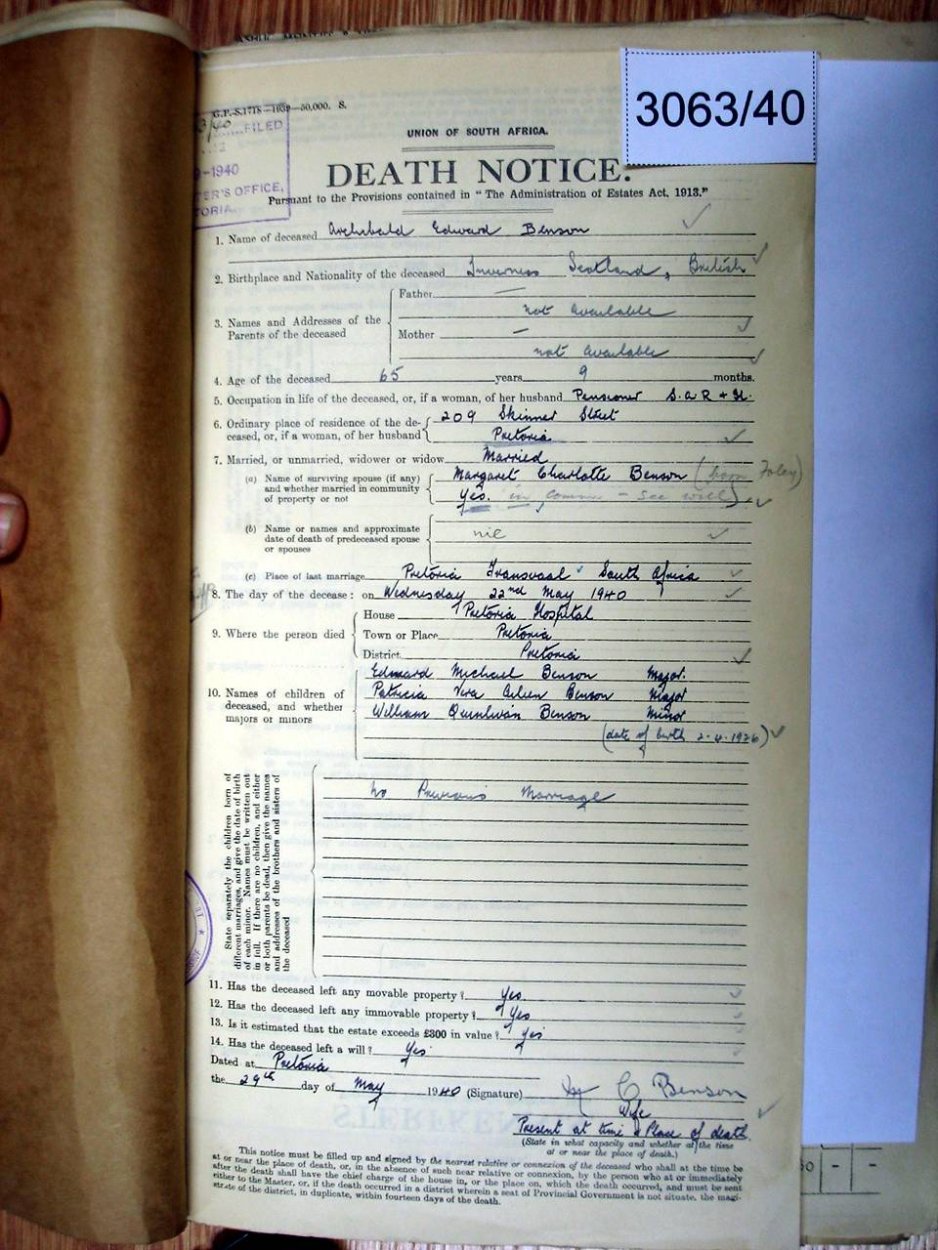 3063/40
G.P.-S.1778—1939—50,000. S.
FILED
-1940
ER'S OFFICE,
TORIA
UNION OF SOUTH AFRICA.
DEATH NOTICE.
Pursuant to the Provisions contained in "The Administration of Estates Act, 1913."
1. Name of deceased Archibald Edward Benson
2. Birthplace and Nationality of the deceased Inverness Scotland, British
Father —
not available
3. Names and Addresses of the Parents of the deceased
Mother —
not available
4. Age of the deceased 65 years 9 months.
5. Occupation in life of the deceased, or, if a woman, of her husband Pensioner S.A.R & H.
6. Ordinary place of residence of the deceased, or, if a woman, of her husband 209 Skinner Street
Pretoria
7. Married, or unmarried, widower or widow Married
(a) Name of surviving spouse (if any) and whether married in community of property or not
Margaret Charlotte Benson (born Foley)
Yes. in comm - see will)
(b) Name or names and approximate date of death of predeceased spouse or spouses
nil
(c) Place of last marriage Pretoria Transvaal South Africa
8. The day of the decease: on Wednesday 22nd May 1940
9. Where the person died
House Pretoria Hospital
Town or Place Pretoria
District Pretoria
10. Names of children of deceased, and whether majors or minors
Edward Michael Benson Major.
Patricia Vera Benson Major
William Quinlivan Benson Minor
(date of birth 2-4-1926)
State separately the children born of
different marriages, and give the date of birth
of each minor. Names must be written out
in full. If there are no children, and either
or both parents be dead, then give the names
and addresses of the brothers and sisters of
the deceased
No Previous Marriage
11. Has the deceased left any movable property? Yes
12. Has the deceased left any immovable property? Yes
13. Is it estimated that the estate exceeds £300 in value? Yes
14. Has the deceased left a will? Yes
Dated at Pretoria
the 29th day of May 1940 (Signature) M C Benson
Wife
Present at time & Place of death
(State in what capacity and whether at the time
at or near the place of death.)
This notice must be filled up and signed by the nearest relative or connexion of the deceased who shall at the time be
at or near the place of death, or, in the absence of such near relative or connexion, by the person who at or immediately
after the death shall have the chief charge of the house in, or the place on, which the death occurred, and must be sent
either to the Master, or, if the death occurred in a district wherein a seat of Provincial Government is not situate, the magi-
strate of the district, in duplicate, within fourteen days of the death.